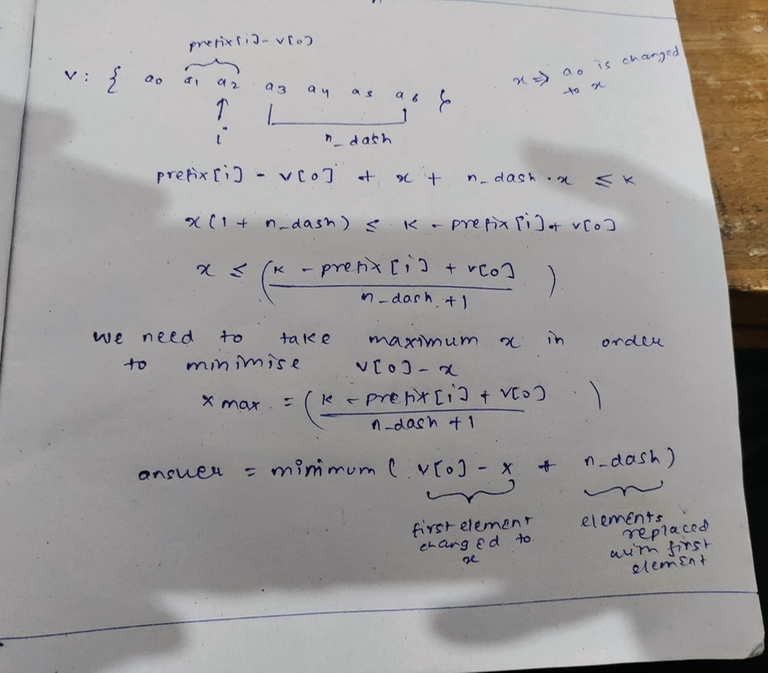 prefix[i] - v[0]
v : { a0 a1 a2 a3 a4 a5 a6 }
x => a0 is changed
to x
i
n_dash
prefix[i] - v[0] + x + n_dash . x ≤ k
x(1 + n_dash) ≤ k - prefix[i] + v[0]
x ≤ (k - prefix[i] + v[0]
n_dash + 1)
we need to take maximum x in order
to minimise v[0] - x
x max = (k - prefix[i] + v[0]
n_dash + 1)
answer = minimum ( v[0] - x + n_dash)
first element
changed to
x
elements
replaced
with first
element